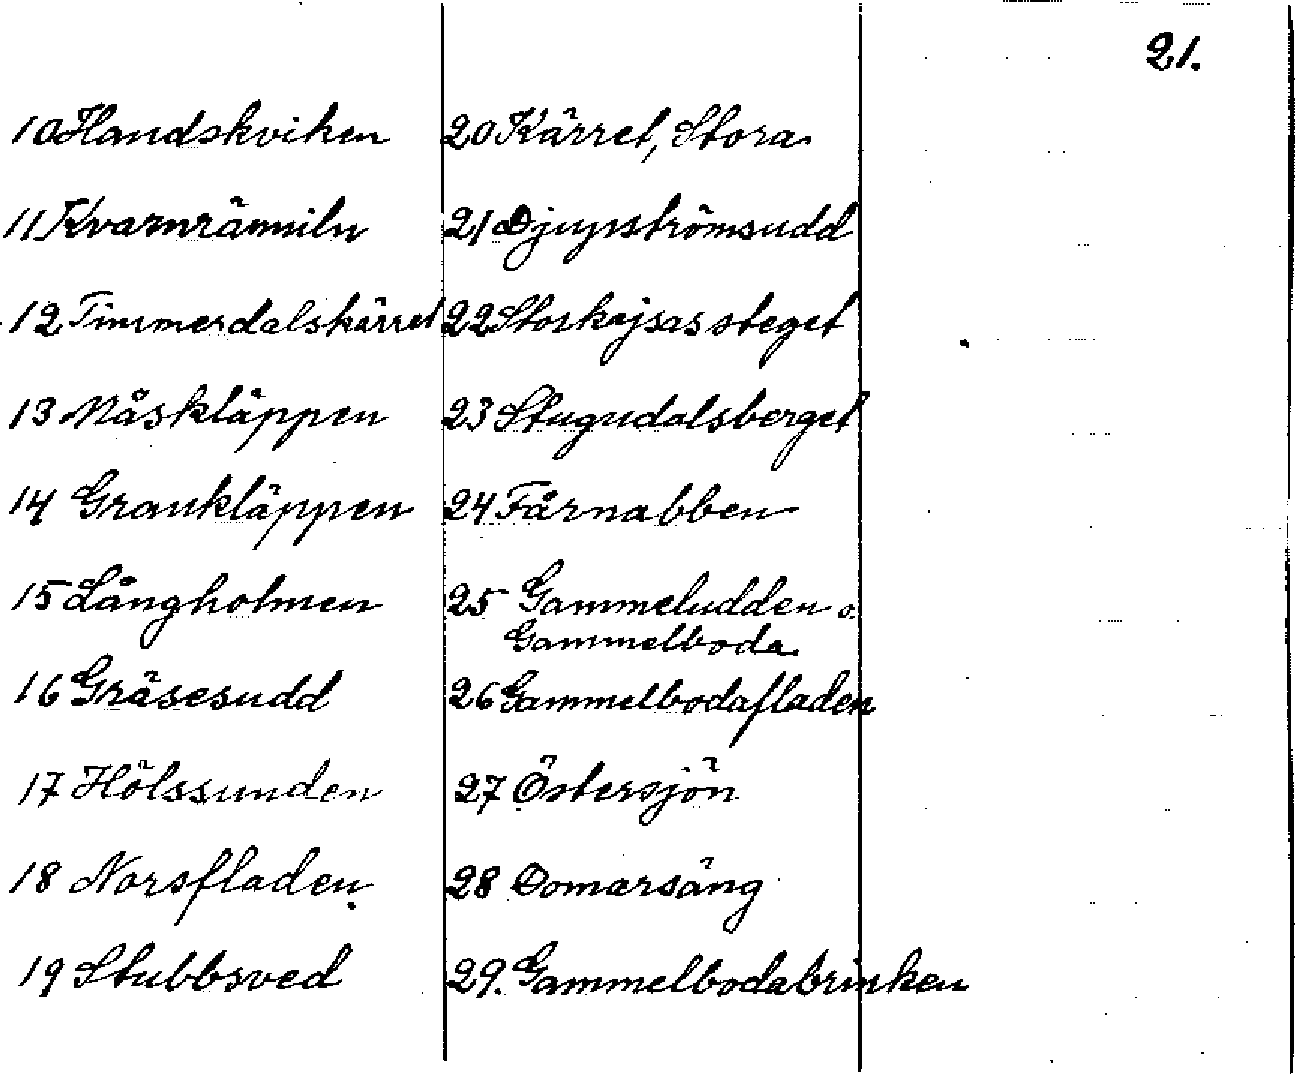 21.
10 Handskviken
11 Kvarnränniln
12 Timmerdalskärret
13 Måskläppen
14 Grankläppen
15 Långholmen
16 Gräsesudd
17 Hölssunden
18 Norsfladen
19 Stubbsved
20 Kärret, Stora
21 Djupströmsudd
22 Storkajsassteget
23 Stugudalsberget
24 Fårnabben
25 Gammeludden o.
Gammelboda
26 Gammelbodafladen
27 Östersjön
28 Domarsäng
29. Gammelbodabrinken